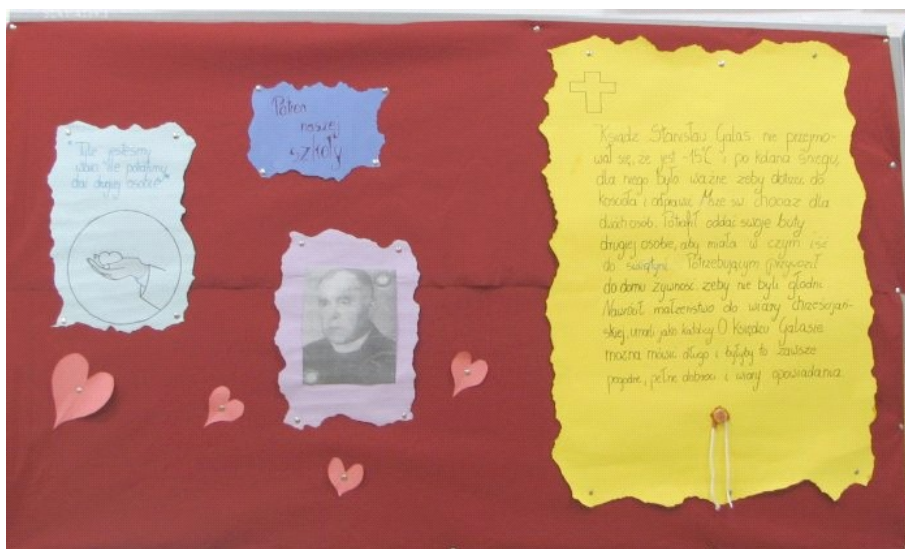 "Tyle jesteśmy
warci ile potrafimy
dać drugiej osobie"
Patron
naszej
szkoły
Ksiądz Stanisław Galas nie przejmo-
wał się, że jest -15°C i po kolana śniegu,
dla niego było ważne żeby dotrzeć do
kościoła i odprawić Mszę św. chociaż dla
dwóch osób. Potrafił oddać swoje buty
drugiej osobie, aby miała w czym iść
do świątyni. Potrzebującym przywoził
do domu żywność żeby nie byli głodni.
Nawrócił małżeństwo do wiary chrześcijań-
skiej, umarli jako katolicy. O księdzu Galasie
można mówić długo i byłyby to zawsze
pogodne, pełne dobroci i wiary opowiadania.